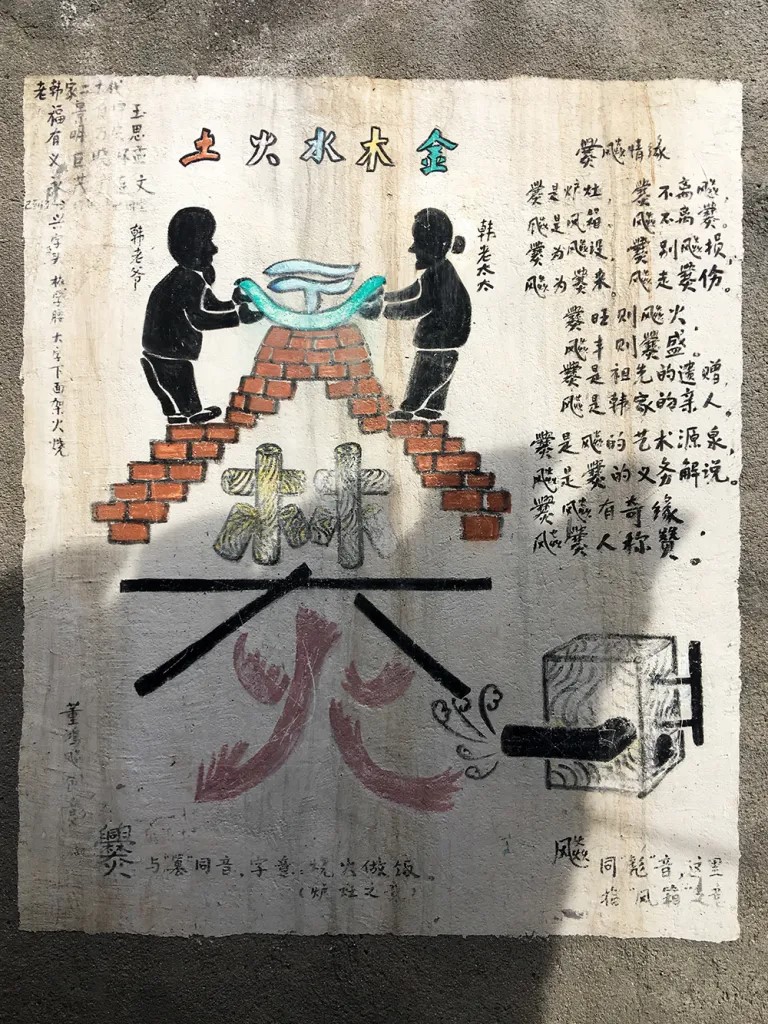 老韩家二十代
玉思孟文
福有义
兴字头 林字腰 大字下面架火烧
土火水木金
韩老爷
韩老太太
爨飚情缘
爨是炉灶， 爨不离飚，
飚是风箱。 飚不离爨。
爨为飚设， 爨别飚损，
飚为爨来。 飚走爨份。
爨旺则飚火，
飚丰则爨盛。
爨是祖先的遗赠，
飚是韩家的亲人。
爨是飚的艺术源泉，
飚是爨的义务解说。
爨飚有奇缘
飚爨人称赞。
董鸿
爨 与"篡"同音，字意：烧火做饭。
（炉灶之意）
飚 同"彪"音，这里
指"风箱"之意